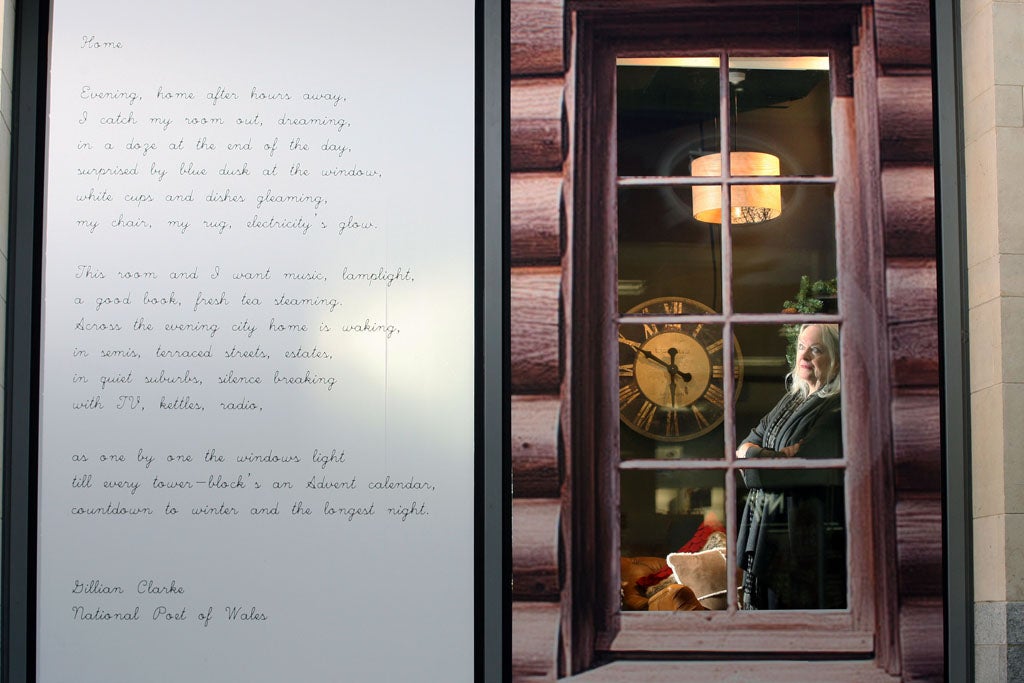 Home
Evening, home after hours away,
I catch my room out, dreaming,
in a doze at the end of the day,
surprised by blue dusk at the window,
white cups and dishes gleaming,
my chair, my rug, electricity's glow.
This room and I want music, lamplight,
a good book, fresh tea steaming.
Across the evening city home is waking,
in semis, terraced streets, estates,
in quiet suburbs, silence breaking
with TV, kettles, radio,
as one by one the windows light
till every tower-block's an Advent calendar,
countdown to winter and the longest night.
Gillian Clarke
National Poet of Wales